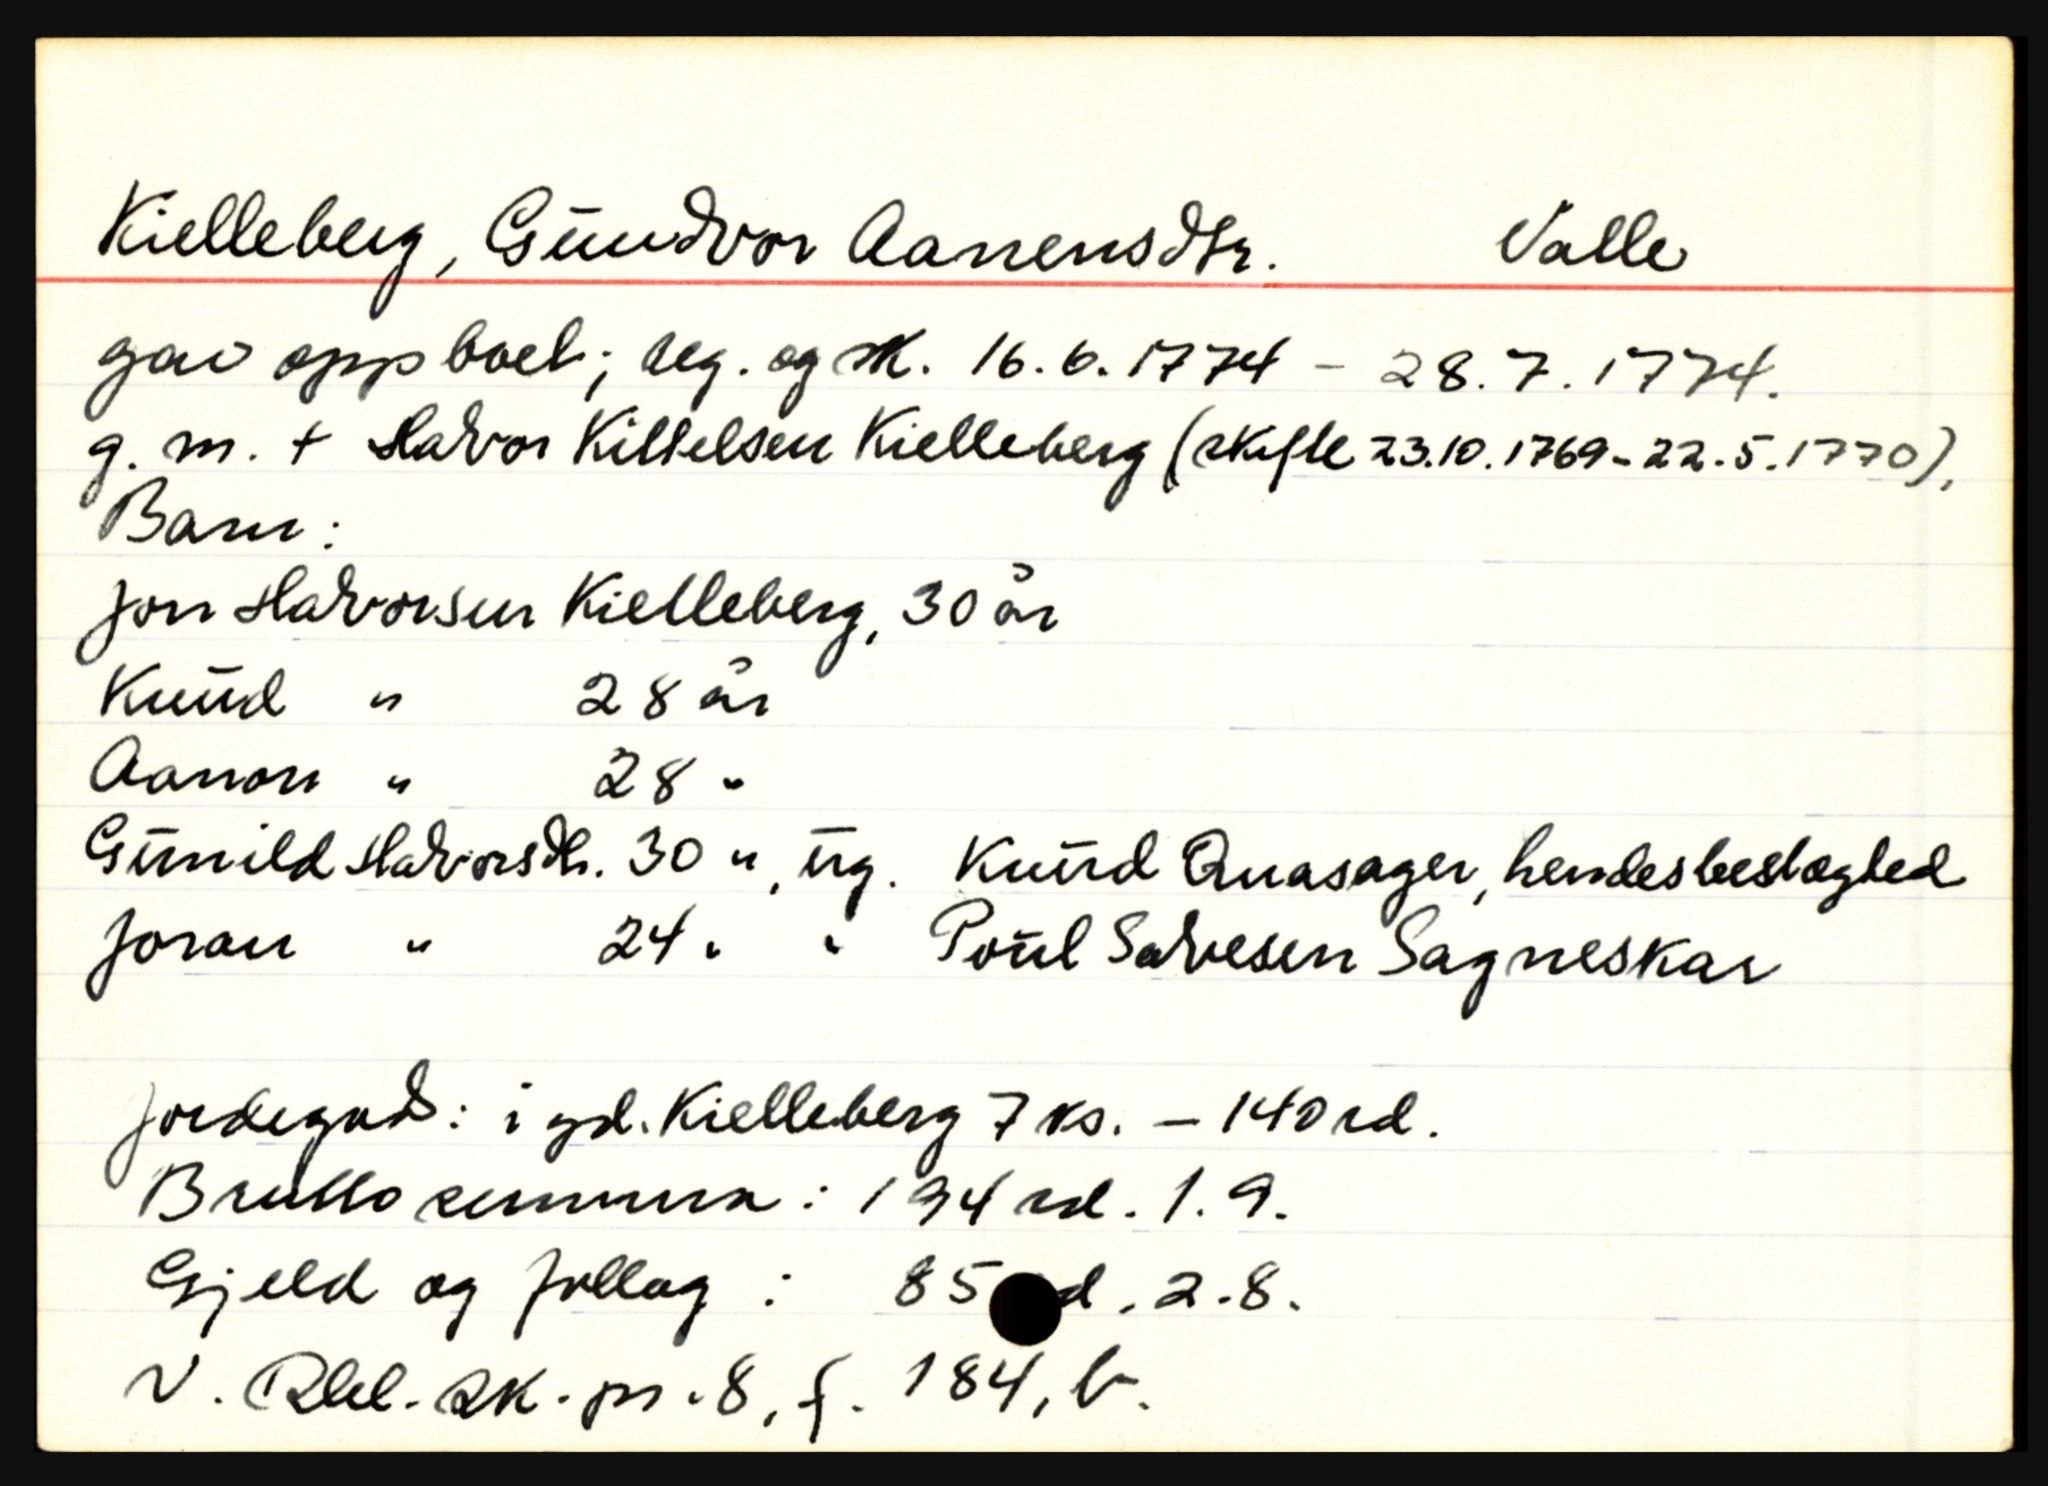 Kielleberg, Gundvor Aanensdtr. Valle
gav opp boet; reg. og sk. 16.6.1774 - 28.7.1774.
g. m. + Halvor Kittelsen Kielleberg (skifte 23.10.1769-22.5.1770),
Barn:
Jon Halvorsen Kielleberg, 30 år
Knud " 28 år
Aanon " 28 "
Gunild Halvorsdtr. 30 ", ug. Knud Quasager, hendes beslægted
Joran " 24 " " Poul Salvesen Sagneskar
Jordegods: i gd. Kielleberg 7 ks. - 140 rd.
Brutto summa: 194 rd. 1. 9.
Gjeld og frllag: 85 d. 2.8.
V. Rbl. sk. pr. 8, f. 184, b.